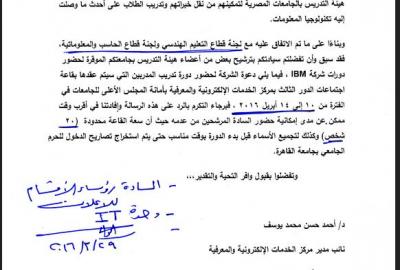 هيئة التدريس بالجامعات المصرية لتمكينهم من نقل خبراتهم وتدريب الطلاب على أحدث ما وصلت إليه
تكنولوجيا المعلومات.
وبناءًا على ما تم الاتفاق عليه مع لجنة قطاع التعليم الهندسي ولجنة قطاع الحاسب والمعلوماتية،
فقد سبق وأن تفضلتم سيادتكم بترشيح بعض من أعضاء هيئة التدريس بجامعتكم الموقرة لحضور
دورات شركة IBM، فيما يلي دعوة الشركة لحضور دورة تدريب المدربين التي سيتم عقدها بقاعة
اجتماعات الدور الثالث بمركز الخدمات الإلكترونية والمعرفية بأمانة المجلس الأعلى للجامعات في
الفترة من ١٠ إلى ١٤ أبريل ٢٠١٦، فبرجاء التكرم بالرد على هذه الرسالة وإفادتنا في أقرب وقت
ممكن عن مدى إمكانية حضور السادة المرشحين من عدمه حيث أن سعة القاعة محدودة (٢٠
شخص) وكذلك لتجميع الأسماء قبل بدء الدورة بوقت مناسب حتى يتم استخراج تصاريح الدخول للحرم
الجامعي بجامعة القاهرة.
وتفضلوا بقبول وافر التحية والتقدير...
السادة رؤساء الأقسام
للإعلان
وحدة IT
٢٠١٦/٣/٢٩
د/ أحمد حسن محمد يوسف
نائب مدير مركز الخدمات الإلكترونية والمعرفية